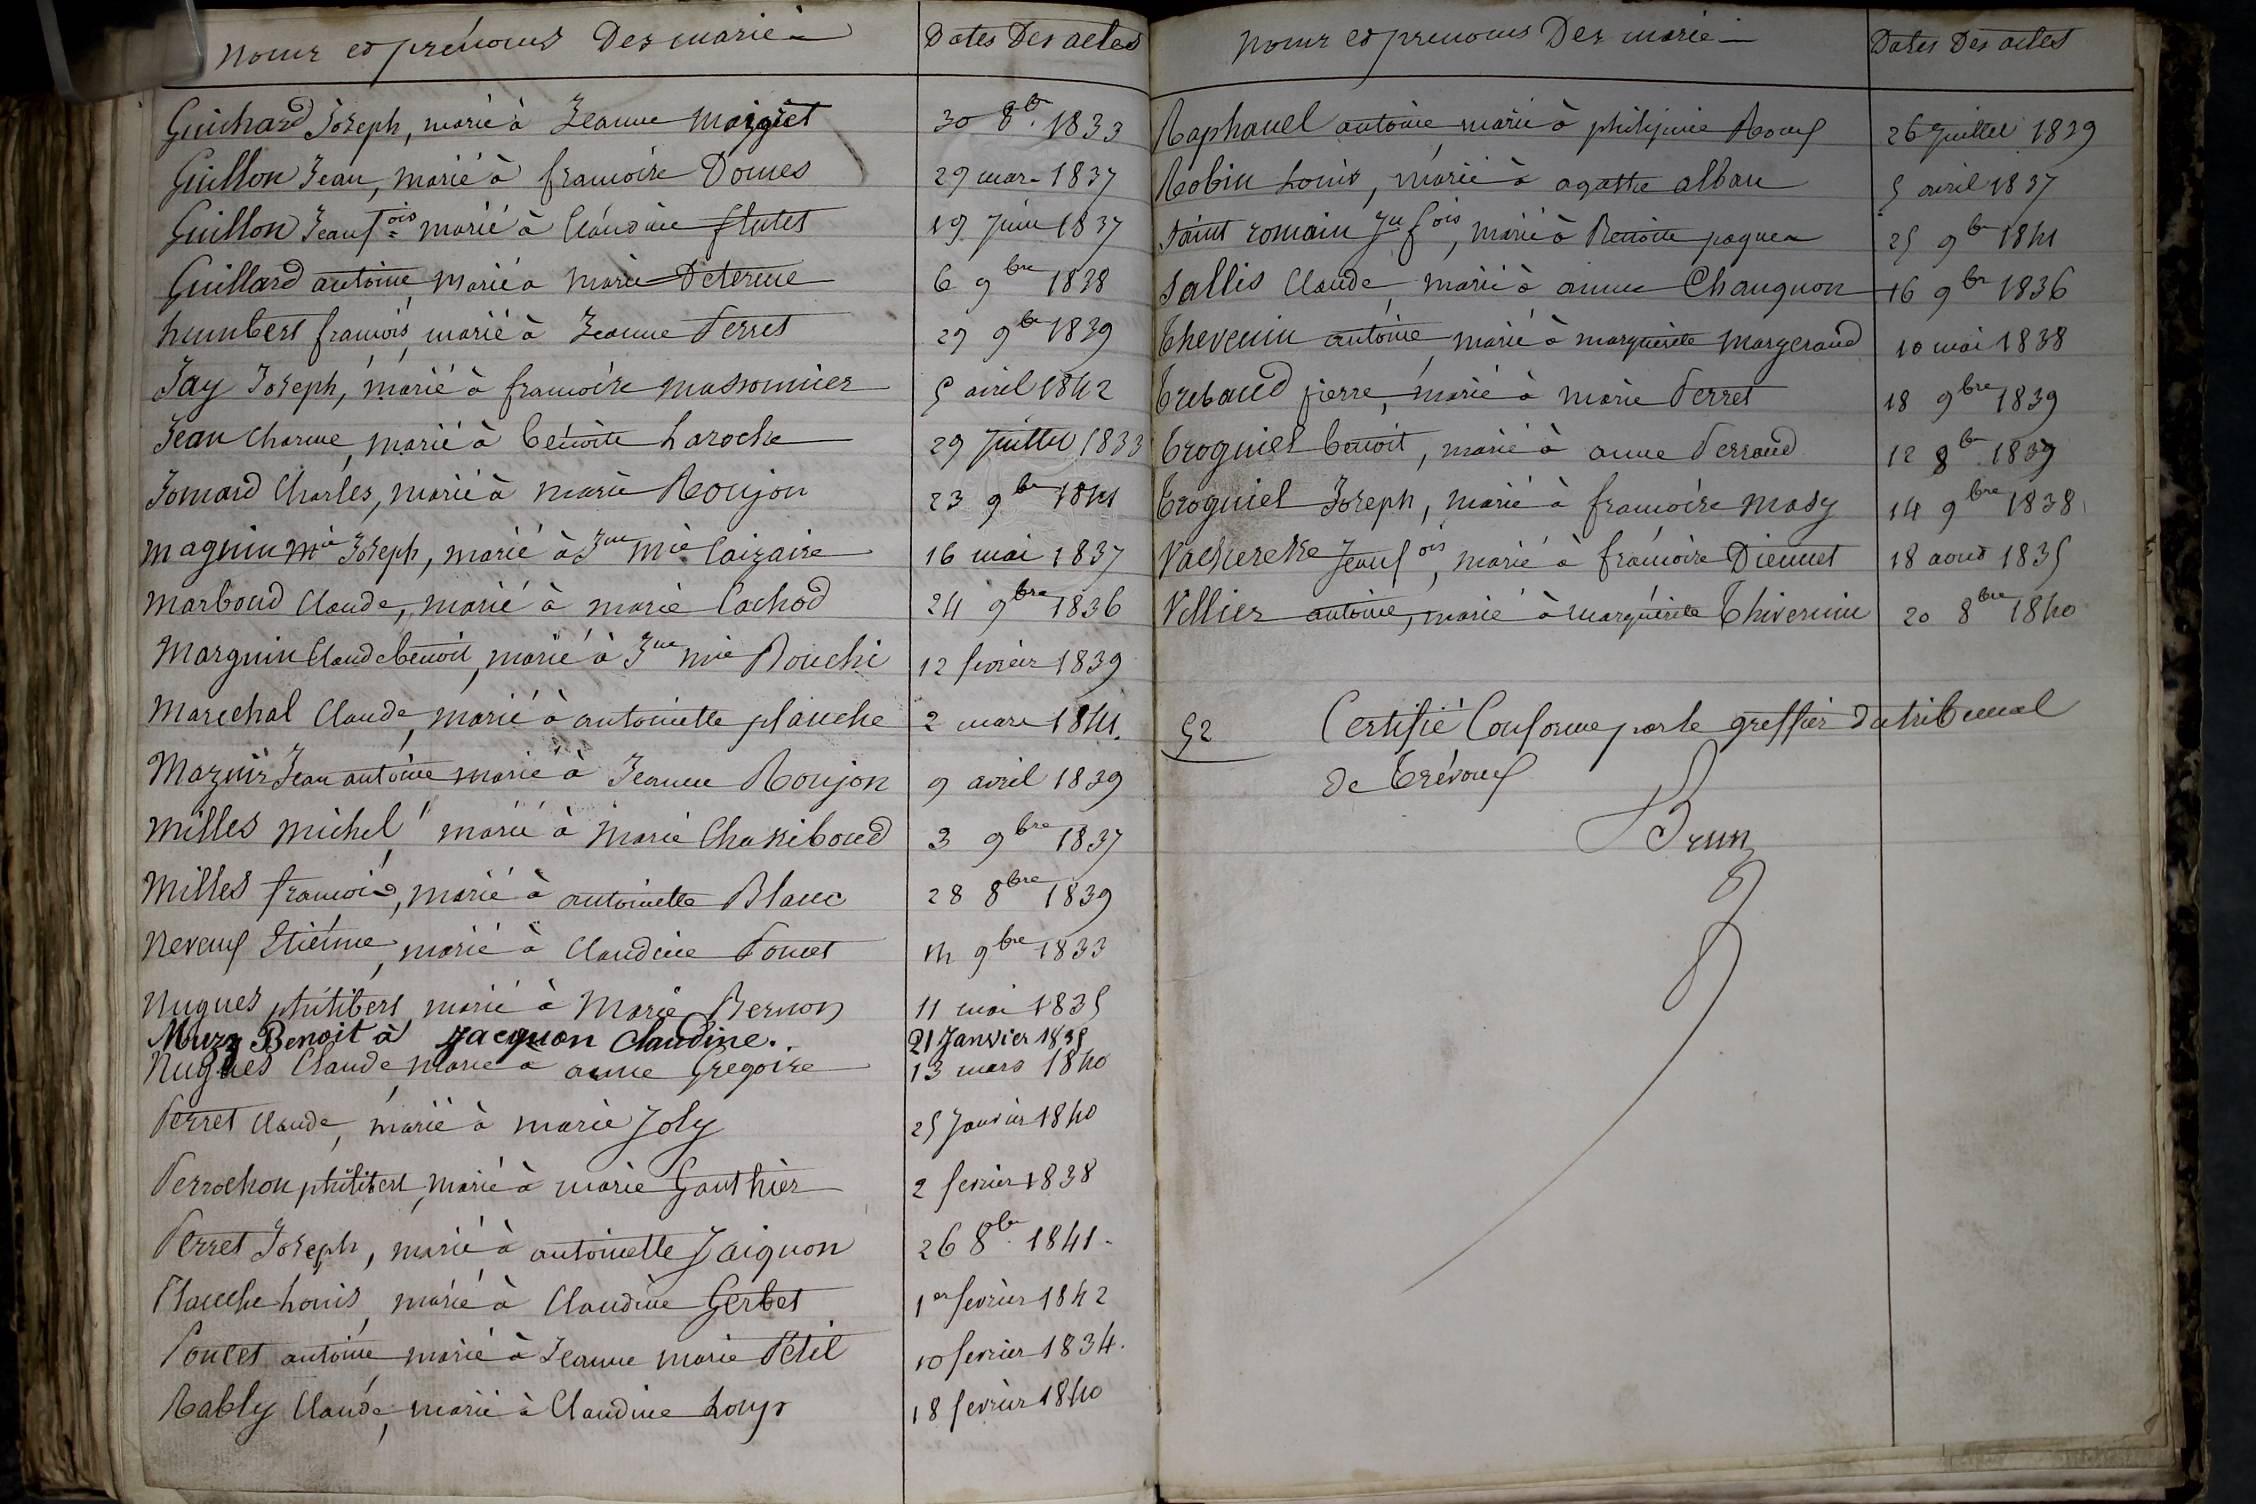 Noms et prénoms Des mariés
Dates Des actes
Guichard Joseph, marié à Jeanne Maigret
30 8bre 1833
Guillon Jean, marié à françoise Domes
29 mars 1837
Guillon Jean fois marié à Claudine flutet
19 Juin 1837
Guillard antoine, marié à marie Determe
6 9bre 1838
humbert francois, marié à Jeanne Perret
29 9bre 1839
Jay Joseph, marié à françoise massonnier
5 avril 1842
Jean Charme, marié à benoite Laroche
29 Juillet 1833
Jomard Charles, marié à marie Roujon
23 9bre 1841
magnin Mie Joseph, marié à Jne Mie
16 mai 1837
Marboud Claude, marié à marie Cachod
24 9bre 1836
Marguin Claude benoit, marié à Jne mie Bouchi
12 fevrier 1839
Marechal Claude, marié à antoinette planche
2 mars 1841.
Mazuir Jean antoine marié à Jeanne Roujon
9 avril 1839
Milles michel, marié à Marie
3 9bre 1837
Milles francois, marié à antoinette Blanc
28 8bre 1839
Neveux Etienne, marié à Claudine Poncet
9bre 1833
Nugues philibert, marié à Marie Bernon
11 mai 1835
Muzy Benoit à Jacquon Claudine.
21 Janvier 1835
Nugues Claude, marié à anne Gregoire
13 mars 1840
Perret Claude, marié à marie Joly
25 Janvier 1840
Perrochon philibert, marié à marie Gauthier
2 fevrier 1838
Perret Joseph, marié à antoinette Jaiquon
26 8bre 1841.
Planche Louis, marié à Claudine Gerbet
1er fevrier 1842
Poncet antoine, marié à Jeanne marie Petit
10 fevrier 1834.
Rably Claude, marié à Claudine Loup
18 fevrier 1840
Noms et prenoms Des mariés
Dates Des actes
Raphanel antoine, marié à Roux
26 Juillet 1839
Robin Louis, marié à agathe alban
5 avril 1837
Saint romain Jn fois, marié à Benoite paquer
25 9bre 1841
Sallis Claude, marié à anne Changnon
16 9bre 1836
Thevenin antoine, marié à marguerite Margerand
10 mai 1838
Trebaud pierre, marié à marie Perret
18 9bre 1839
Trogniel benoit, marié à anne Perraud
12 8bre 1839
Trogniel Joseph, marié à françoise Masy
14 9bre 1838
Vacherette Jean fois, marié à françoise Diennet
18 aout 1835
Villier antoine, marié à marguerite Thivennin
20 8bre 1840
52
Certifié Conforme par le greffier du tribunal
de Trévoux
Brun